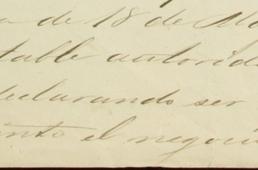 a de 18 de Ma
table autorida
declarando ser
ento el negoci